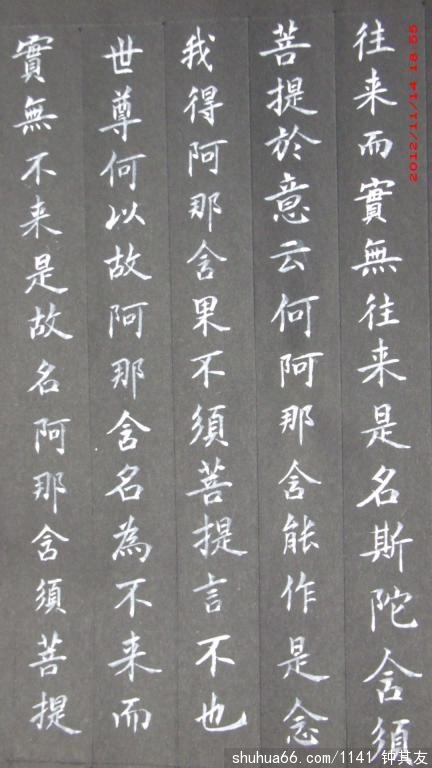 往来而實無往来是名斯陀含須
菩提於意云何阿那含能作是念
我得阿那含果不須菩提言不也
世尊何以故阿那含名為不来而
實無不来是故名阿那含須菩提
2012/11/14 18:55
shuhua66.com/1141 钟其友